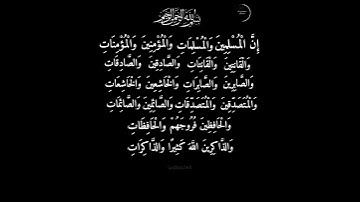 بسم الله الرحمن الرحيم
إِنَّ الْمُسْلِمِينَ وَالْمُسْلِمَاتِ وَالْمُؤْمِنِينَ وَالْمُؤْمِنَاتِ
وَالْقَانِتِينَ وَالْقَانِتَاتِ وَالصَّادِقِينَ وَالصَّادِقَاتِ
وَالصَّابِرِينَ وَالصَّابِرَاتِ وَالْخَاشِعِينَ وَالْخَاشِعَاتِ
وَالْمُتَصَدِّقِينَ وَالْمُتَصَدِّقَاتِ وَالصَّائِمِينَ وَالصَّائِمَاتِ
وَالْحَافِظِينَ فُرُوجَهُمْ وَالْحَافِظَاتِ
وَالذَّاكِرِينَ اللَّهَ كَثِيرًا وَالذَّاكِرَاتِ